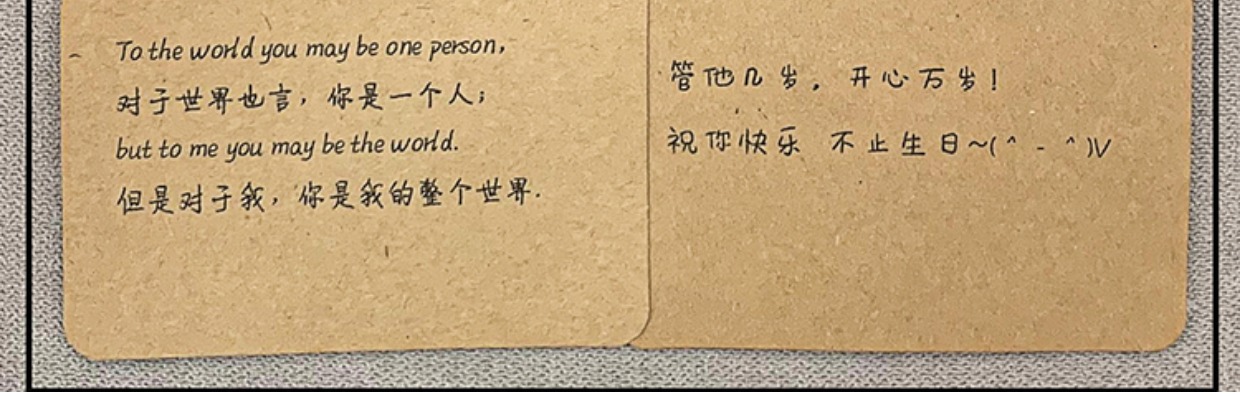 To the world you may be one person,
对于世界也言，你是一个人；
but to me you may be the world.
但是对于我，你是我的整个世界.
管他几岁，开心万岁！
祝你快乐 不止生日~(^-^)V